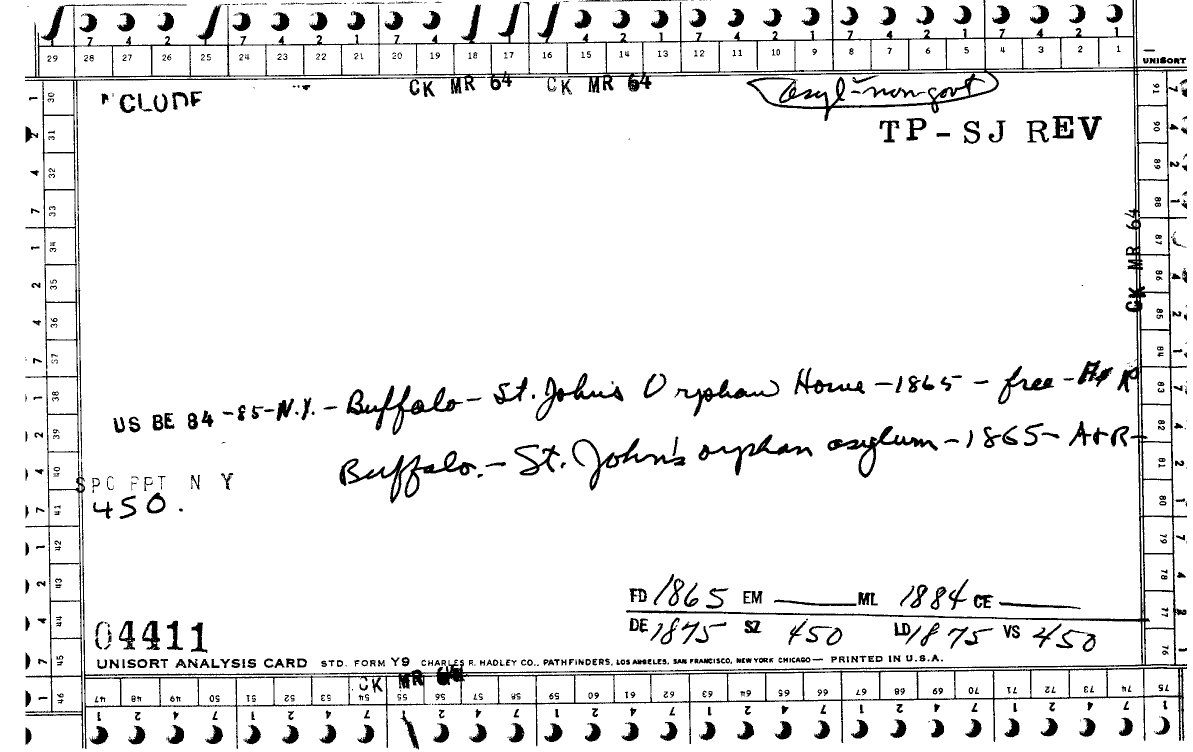 29 28 27 26 25 24 23 22 21 20 19 18 17 16 15 14 13 12 11 10 9 8 7 6 5 4 3 2 1
UNISORT
CLUDE
CK MR 64 CK MR 64
asyl-non-govt
TP-SJ REV
CK MR 64
US BE 84-85-N.Y.-Buffalo-St. John's Orphan Home-1865-free-
Buffalo.-St. John's orphan asylum-1865-A&R-
SPC PPT N Y
450.
FD 1865 EM ML 1884 CE
DE 1875 SZ 450 LD 1875 VS 450
04411
UNISORT ANALYSIS CARD STD. FORM Y9 CHARLES R. HADLEY CO., PATHFINDERS, LOS ANGELES, SAN FRANCISCO, NEW YORK CHICAGO — PRINTED IN U.S.A.
CK MR 64
47 48 49 50 51 52 53 54 55 56 57 58 59 60 61 62 63 64 65 66 67 68 69 70 71 72 73 74 75